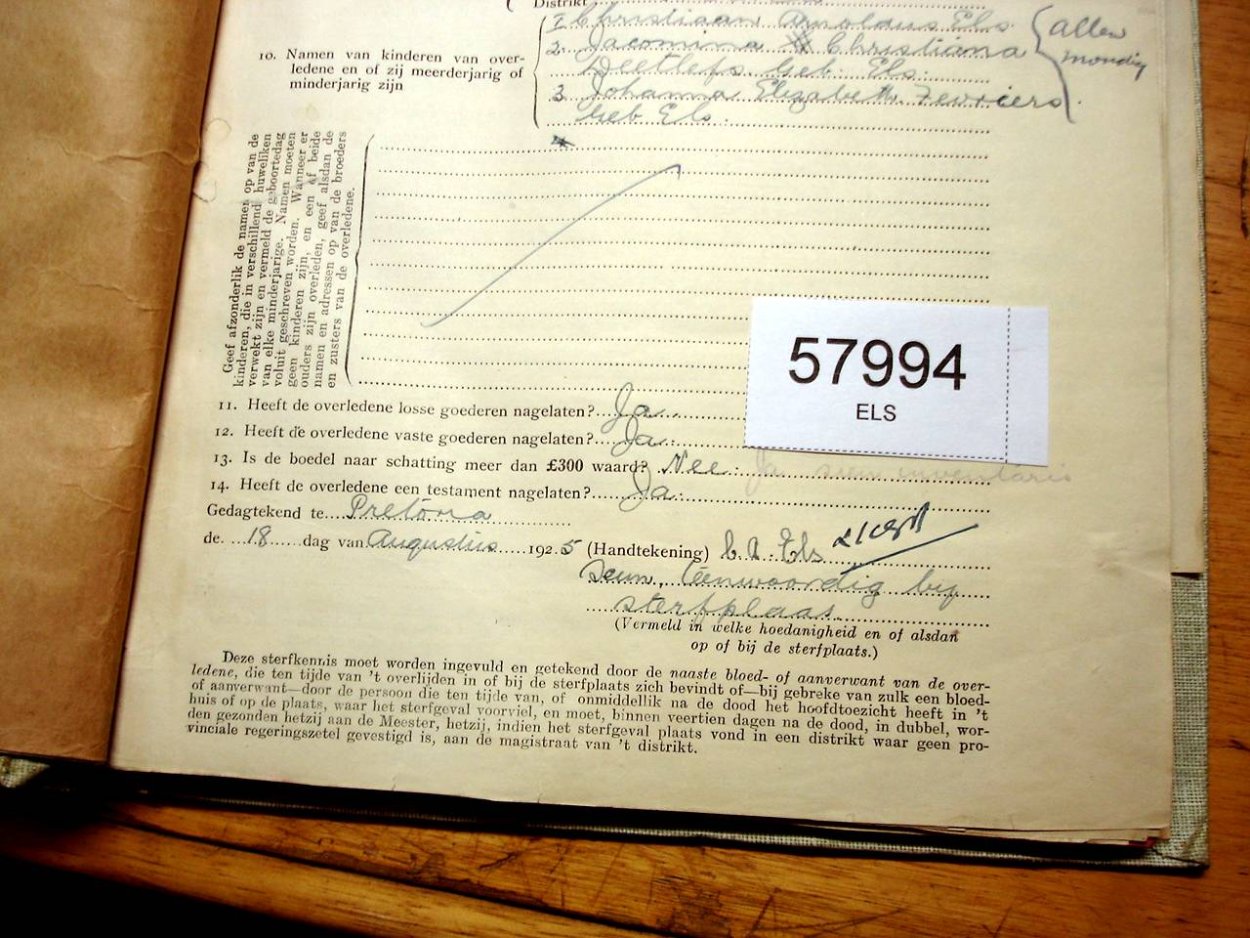 Distrikt
1 Christiaan Arnoldus Els
2 Jacomina Christiana
Deetlefs. geb. Els.
3 Johanna Elizabeth
geb Els.
allen
mondig
10. Namen van kinderen van over-
ledene en of zij meerderjarig of
minderjarig zijn
Geef afzonderlik de namen op van de
kinderen, die in verschillend huweliken
verwekt zijn en vermeld de geboortedag
van elke minderjarige. Namen moeten
voluit geschreven worden. Wanneer er
geen kinderen zijn, en een of beide
ouders zijn overleden, geef alsdan de
namen en adressen op van de broeders
en zusters van de overledene.
57994
ELS
11. Heeft de overledene losse goederen nagelaten? Ja.
12. Heeft de overledene vaste goederen nagelaten? Ja.
13. Is de boedel naar schatting meer dan £300 waard? Nee. Ja inventaris
14. Heeft de overledene een testament nagelaten? Ja.
Gedagtekend te Pretoria
de 18 dag van Augustus 1925 (Handtekening) C. A. Els
seun, teenwoordig by
sterfplaas.
(Vermeld in welke hoedanigheid en of alsdan
op of bij de sterfplaats.)
Deze sterfkennis moet worden ingevuld en getekend door de naaste bloed- of aanverwant van de over-
ledene, die ten tijde van 't overlijden in of bij de sterfplaats zich bevindt of—bij gebreke van zulk een bloed-
of aanverwant—door de persoon die ten tijde van, of onmiddellik na de dood het hoofdtoezicht heeft in 't
huis of op de plaats, waar het sterfgeval voorviel, en moet, binnen veertien dagen na de dood, in dubbel, wor-
den gezonden hetzij aan de Meester, hetzij, indien het sterfgeval plaats vond in een distrikt waar geen pro-
vinciale regeringszetel gevestigd is, aan de magistraat van 't distrikt.